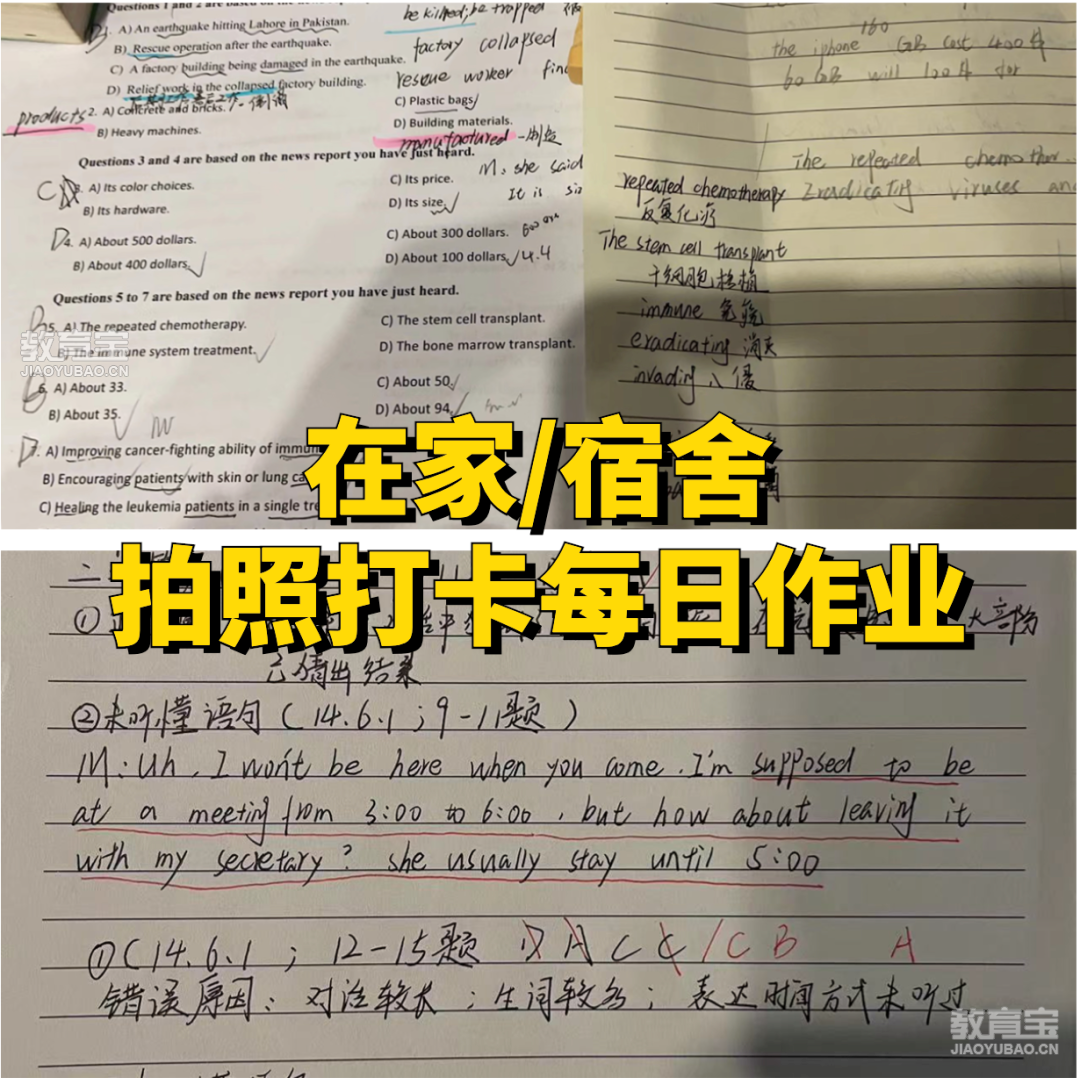 Questions 1 and 2 are based on the
be killed; be trapped
A) An earthquake hitting Lahore in Pakistan.
B) Rescue operation after the earthquake.
factory collapsed
C) A factory building being damaged in the earthquake.
rescue worker
D) Relief work in the collapsed factory building.
products
2. A) Concrete and bricks.
C) Plastic bags
B) Heavy machines.
D) Building materials.
manufactured
Questions 3 and 4 are based on the news report you have just heard.
M, she said
C
3. A) Its color choices.
C) Its price.
It is
B) Its hardware.
D) Its size
D
4. A) About 500 dollars.
C) About 300 dollars.
B) About 400 dollars.
D) About 100 dollars.
4.4
Questions 5 to 7 are based on the news report you have just heard.
5. A) The repeated chemotherapy.
C) The stem cell transplant.
B) The immune system treatment.
D) The bone marrow transplant.
6. A) About 33.
C) About 50.
B) About 35.
D) About 94.
7. A) Improving cancer-fighting ability of
B) Encouraging patients with skin or lung
C) Healing the leukemia patients in a single
160
the iphone GB cost 400
60GB will 100
The repeated
repeated chemotherapy
Eradicating viruses
反复化疗
The stem cell transplant
干细胞移植
immune 免疫
eradicating 消灭
invading 入侵
教育宝
JIAOYUBAO.CN
在家/宿舍
拍照打卡每日作业
大部分
已猜出结果
②未听懂语句(14.6.1;9-11题)
M: Uh, I won't be here when you come. I'm supposed to be
at a meeting from 3:00 to 6:00, but how about leaving it
with my secretary? she usually stay until 5:00
①(14.6.1; 12-15题 A C C / C B A
错误原因:对话较长;生词较多;表达时间方式未听过
教育宝
JIAOYUBAO.CN